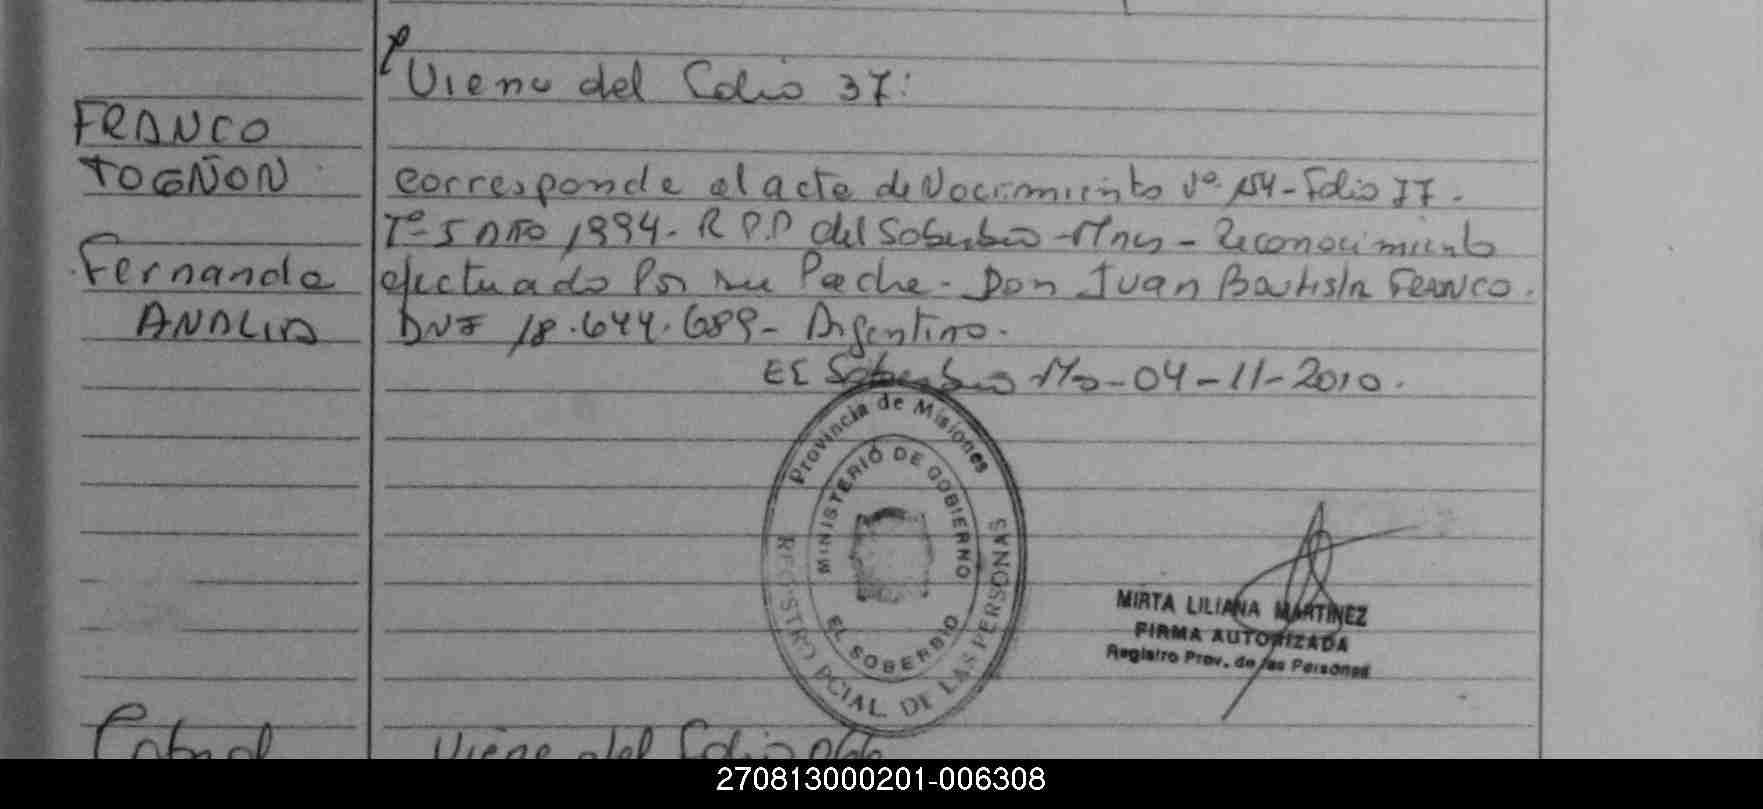 Viene del Folio 37:
FRANCO
TOGÑON
corresponde al acta de Nacimiento Nº 154 - Folio 77.
Tº 5 AÑO 1994. R.P.P del Soberbio - Mnes - Reconocimiento
Fernanda
efectuado Por su Padre. Don Juan Bautista FRANCO.
ANALIA
DNI 18.644.689 - Argentino.
El Soberbio Ms - 04-11-2010.
Provincia de Misiones
MINISTERIO DE GOBIERNO
EL SOBERBIO
REGISTRO PCIAL. DE LAS PERSONAS
MIRTA LILIANA MARTINEZ
FIRMA AUTORIZADA
Registro Prov. de las Personas
Cabral
Viene del Folio
270813000201-006308